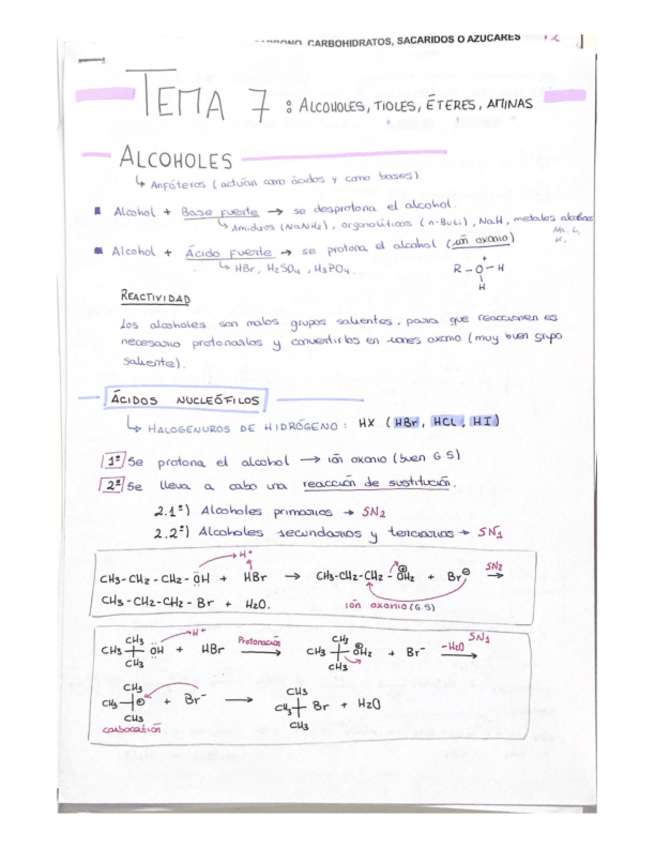 CARBOHIDRATOS, SACARIDOS O AZUCARES
TEMA 7 : ALCOHOLES, TIOLES, ÉTERES, AMINAS
ALCOHOLES
↳ Anfóteros (actúan como ácidos y como bases).
Alcohol + Base Fuerte → se desprotona el alcohol.
↳ Amiduros (NaNH2), organolíticos (n-BuLi), NaH, metales alcalinos
Na, Li,
Alcohol + Ácido Fuerte → se protona el alcohol (ión oxonio)
↳ HBr, H2SO4, H3PO4...
+
R - O - H
H
REACTIVIDAD
Los alcoholes son malos grupos salientes, para que reaccionen es
necesario protonarlos y convertirlos en iones oxonio (muy buen grupo
saliente).
ÁCIDOS NUCLEÓFILOS
↳ HALOGENUROS DE HIDRÓGENO: HX (HBr, HCL, HI)
1º Se protona el alcohol → ión oxonio (buen G.S)
2º Se lleva a cabo una reacción de sustitución.
2.1º) Alcoholes primarios → SN2
2.2º) Alcoholes secundarios y terciarios → SN1
H+
CH3-CH2-CH2-ÖH + HBr → CH3-CH2-CH2-OH2 + Br⊖ SN2 →
CH3-CH2-CH2-Br + H2O.
ión oxonio (G.S)
CH3 H+ Protonación CH3 -H2O SN1
CH3 OH + HBr → CH3 OH2 + Br- →
CH3 CH3
CH3 CH3
CH3 ⊕ + Br- → CH3 Br + H2O
CH3 CH3
carbocatión